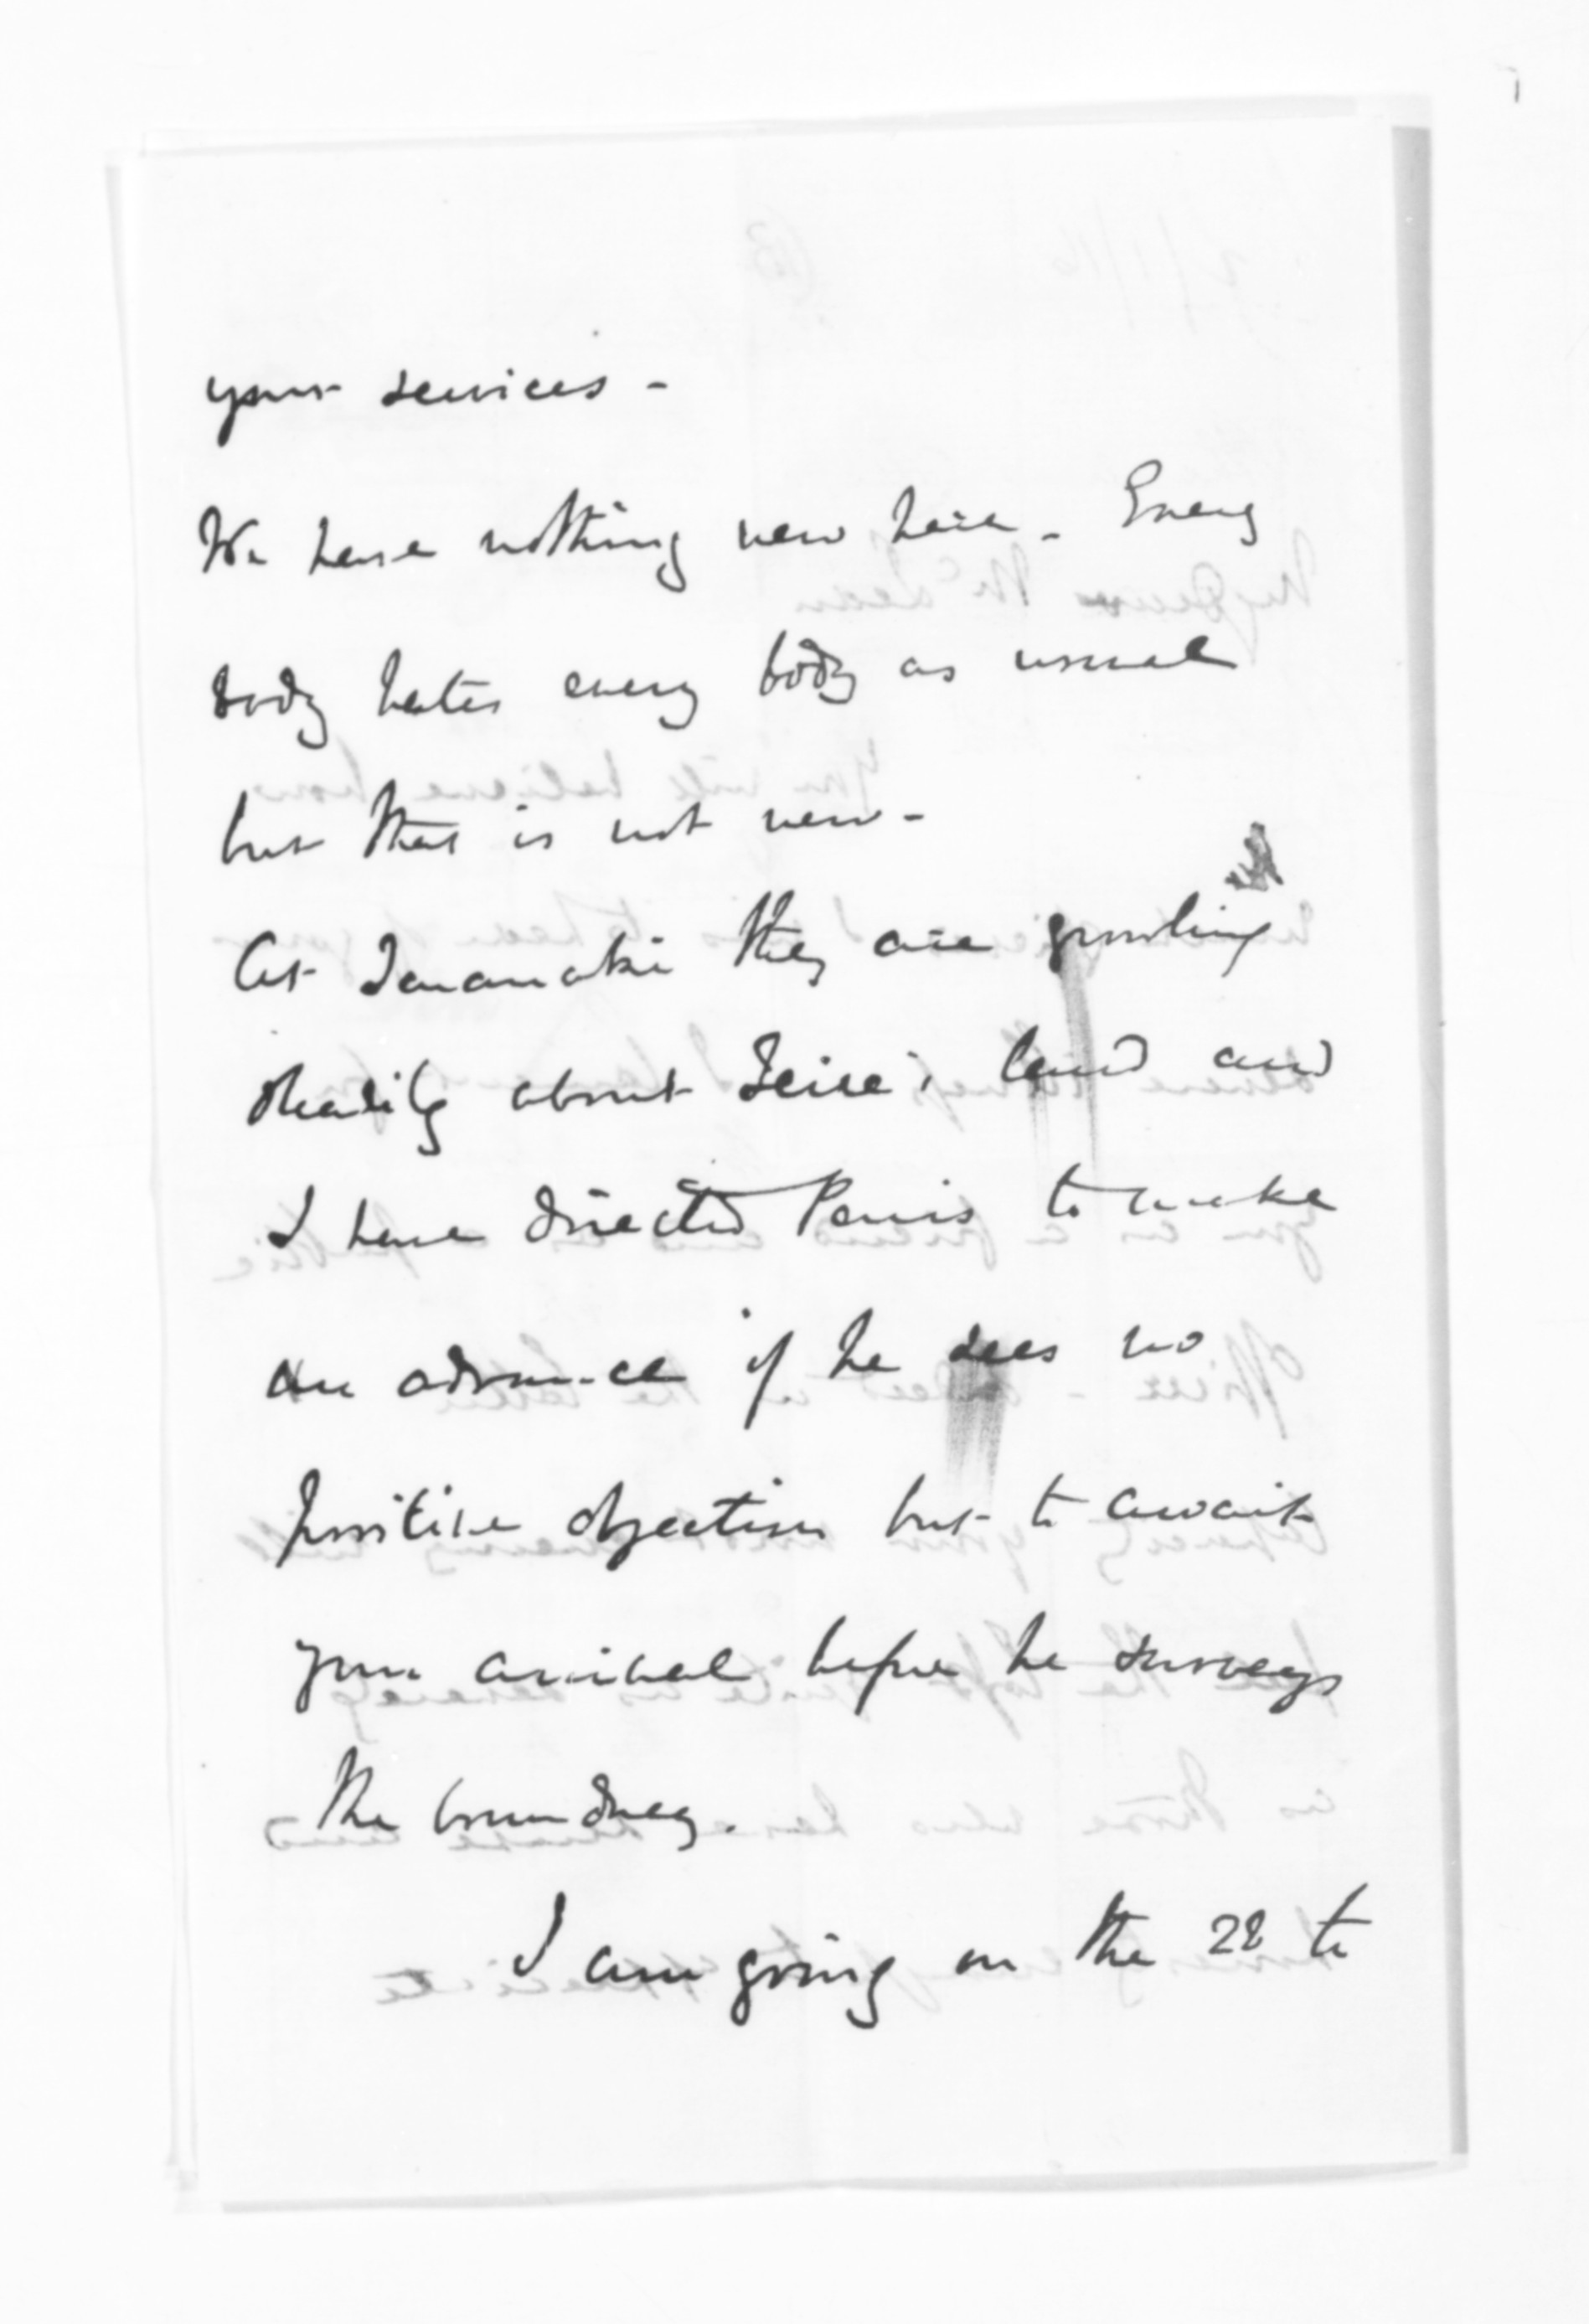 your services -
We have nothing new here - Every
body hates every body as usual
but that is not new -
At Taranaki they are growling
steadily about Teira's land and
I have directed Parris to make
an advance if he sees no
positive objection but to await
your arrival before he surveys
the boundary.
I am going on the 28 to